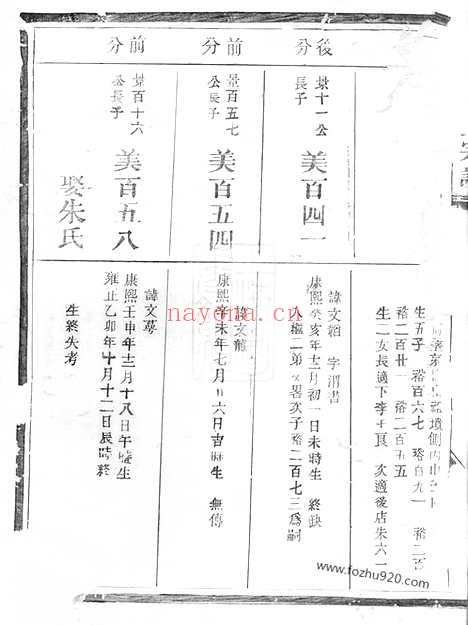 生五子 裕百六七 裕百九一 裕二百
裕二百廿一 裕二百五五
生二女長適下李 次適後店朱六一
後分
景十一公長子
美百四一
諱文 字渭書
康熙癸亥年十二月初一日未時生 終缺
入繼二弟文 次子裕二百七三爲嗣
前分
景百五七公長子
美百五四
諱文
康熙辛未年七月 六日吉時生 無傳
前分
景百十六公長子
美百五八
娶朱氏
諱文
康熙壬申年十二月十八日午時生
雍正乙卯年十月十二日辰時終
生終失考
nayona.cn
www.fozhu920.com